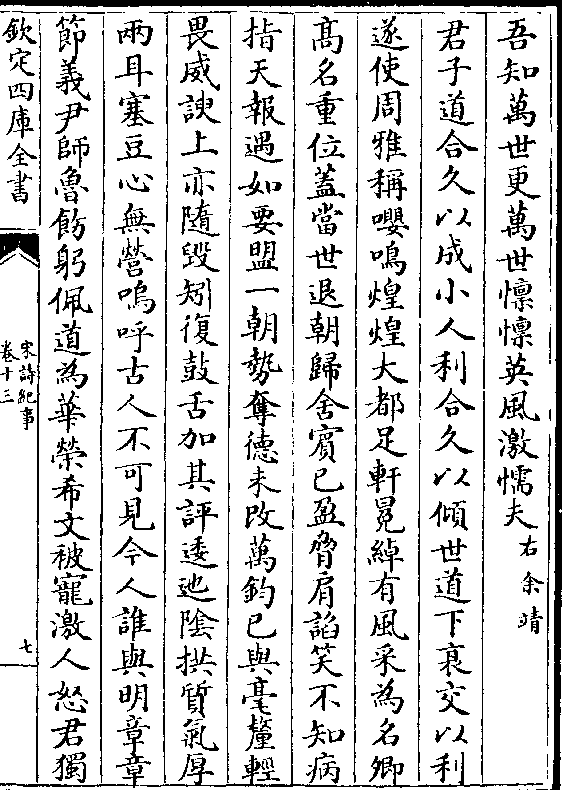 吾知萬世更萬世懍懍英風激懦夫右余靖
君子道合久以成小人利合久以傾世道下衰交以利
遂使周雅稱嚶鳴煌煌大都足軒冕綽有風采為名卿
髙名重位蓋當世退朝歸舍賓已盈脅肩諂笑不知病
指天報遇如要盟一朝勢奪德未改萬鈞已與毫釐輕
畏威諛上亦隨毀矧復鼓舌加其評逶迤陰拱質氣厚
兩耳塞豆心無營嗚呼古人不可見今人誰與明章章
節義尹師魯飭躬佩道為華榮希文被寵激人怒君獨
欽定四庫全書
宋詩紀事
卷十三
七